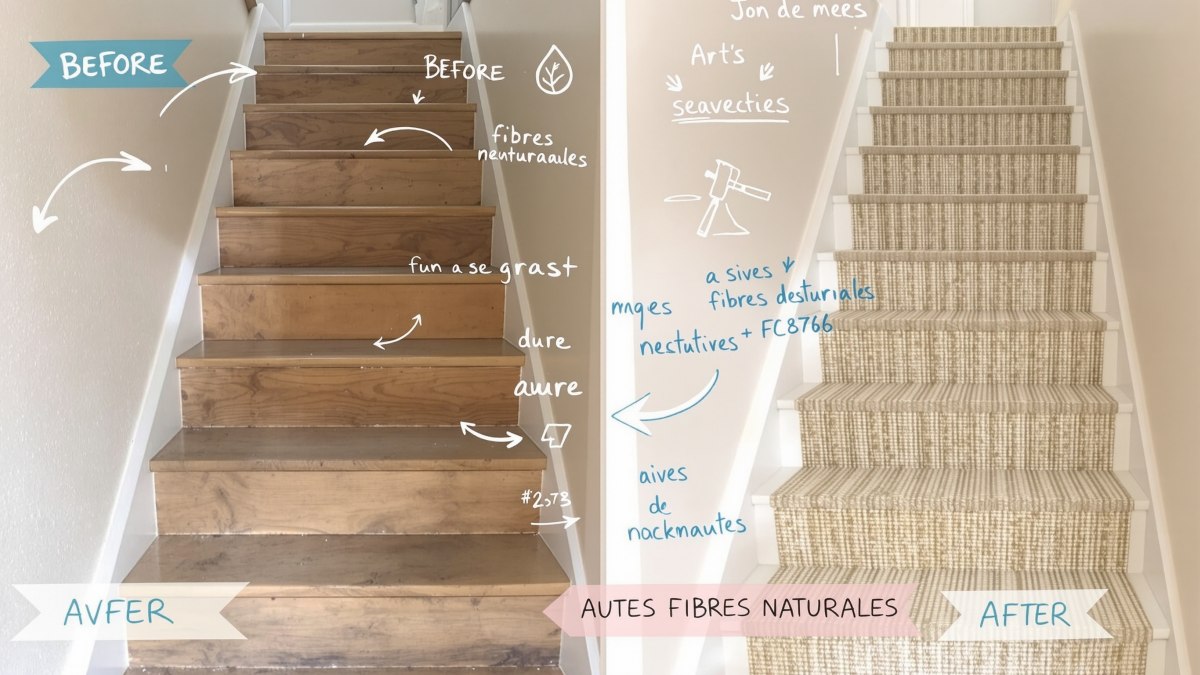 BEFORE
BEFORE
fibres
neuturaaules
fun a se grast
dure
auure
#2573
AVFER
Jon de mees
Art's
seavecties
a sives
fibres desturiales
mqes
nestutives + FC8766
aives
de
nackmautes
AUTES FIBRES NATURALES
AFTER